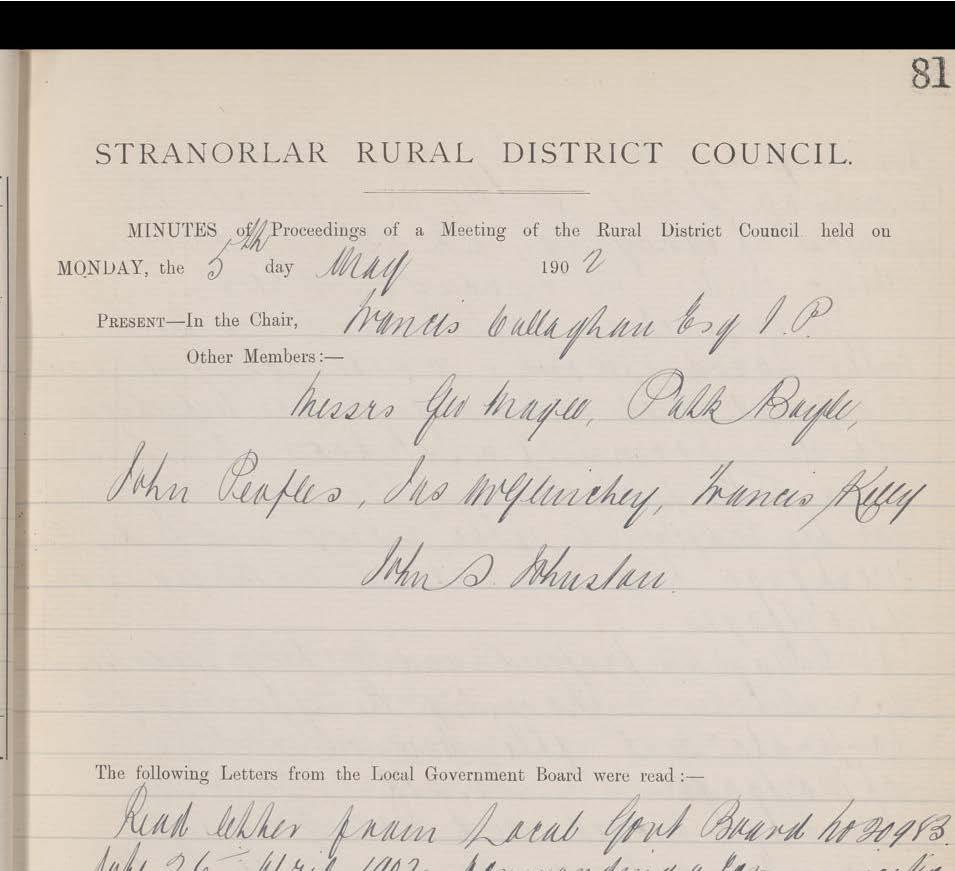 81
STRANORLAR RURAL DISTRICT COUNCIL.
MINUTES of Proceedings of a Meeting of the Rural District Council held on
MONDAY, the 5th day May 1902
PRESENT—In the Chair, Francis Callaghan Esq J.P.
Other Members:—
Messrs Geo Magee, Patk Boyle,
John Peoples, Jas McGlinchey, Francis Kelly
John S. Johnston.
The following Letters from the Local Government Board were read:—
Read letter from Local Govt Board No 20983
26 April 1902